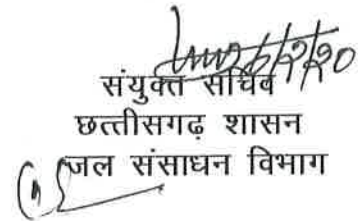 26/2/20
संयुक्त सचिव
छत्तीसगढ़ शासन
जल संसाधन विभाग